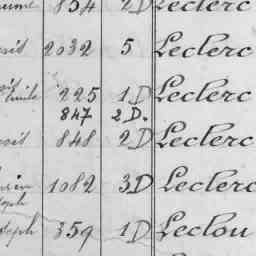 834 2D Leclerc
2032 5 Leclerc
225 1D Leclerc
847 2D.
848 2D Leclerc
1082 3D Leclerc
359 1D Leclou